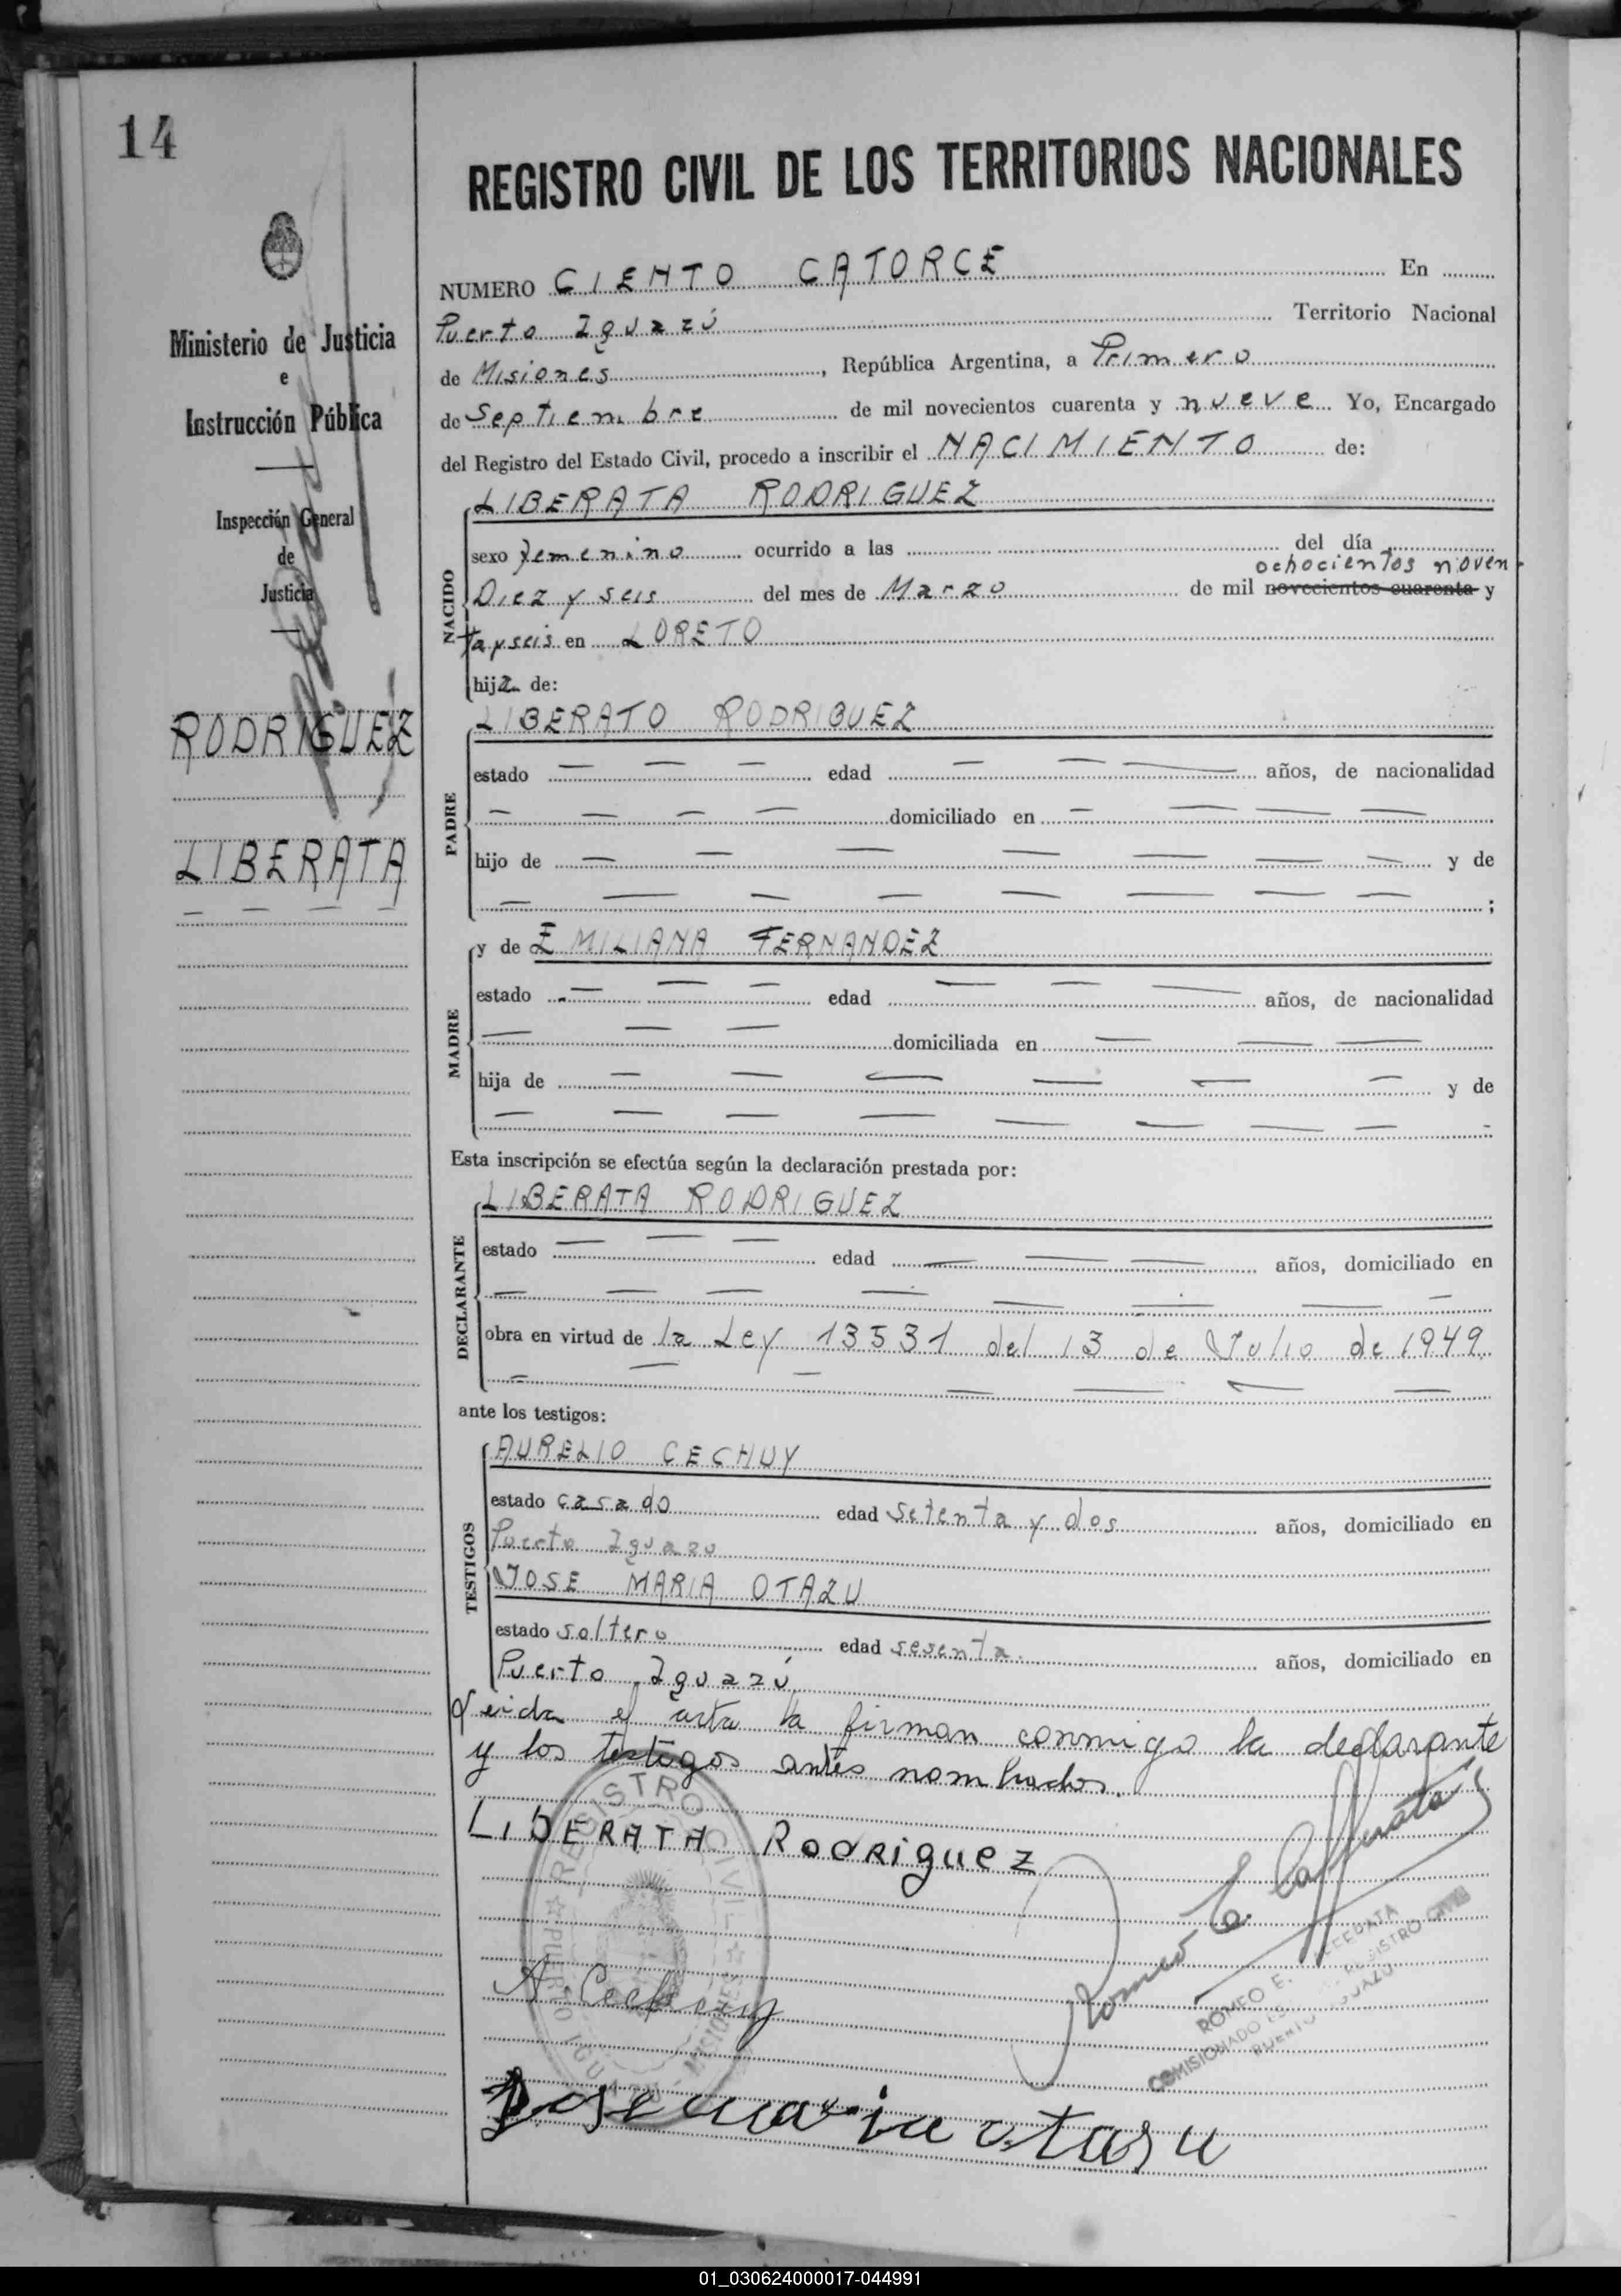 14
REGISTRO CIVIL DE LOS TERRITORIOS NACIONALES
Ministerio de Justicia
e
Instrucción Pública
Inspección General
de
Justicia
RODRIGUEZ
LIBERATA
NUMERO CIENTO CATORCE En
Puerto Iguazú Territorio Nacional
de Misiones, República Argentina, a Primero
de Septiembre de mil novecientos cuarenta y nueve Yo, Encargado
del Registro del Estado Civil, procedo a inscribir el NACIMIENTO de:
LIBERATA RODRIGUEZ
NACIDO
sexo femenino ocurrido a las del día
ochocientos noven
Diez y seis del mes de Marzo de mil novecientos cuarenta y
tayseis en LORETO
hija de:
LIBERATO RODRIGUEZ
PADRE
estado — — — edad — — — años, de nacionalidad
— — — — domiciliado en — — — —
hijo de — — — — — — — y de
— — — — — — — — ;
MADRE
y de EMILIANA FERNANDEZ
estado — — — edad — — — años, de nacionalidad
— — — domiciliada en — — —
hija de — — — — — — y de
— — — — — — — — -
Esta inscripción se efectúa según la declaración prestada por:
LIBERATA RODRIGUEZ
DECLARANTE
estado — — — edad — — — años, domiciliado en
— — — — — — — —
obra en virtud de la Ley 13531 del 13 de Julio de 1949
— — — — — — —
ante los testigos:
TESTIGOS
AURELIO CECHUY
estado casado edad setenta y dos años, domiciliado en
Puerto Iguazu
JOSE MARIA OTAZU
estado soltero edad sesenta. años, domiciliado en
Puerto Iguazú
Leida el acta la firman conmigo la declarante
y los testigos antes nombrados.
LIBERATA RODRiguez
REGISTRO CIVIL
PUERTO IGUAZU - MISIONES
A. Cechuy
Romeo E.
ROMEO E.
COMISIONADO
REGISTRO CIVIL
PUERTO IGUAZU
Jose maria otasu
01_030624000017-044991